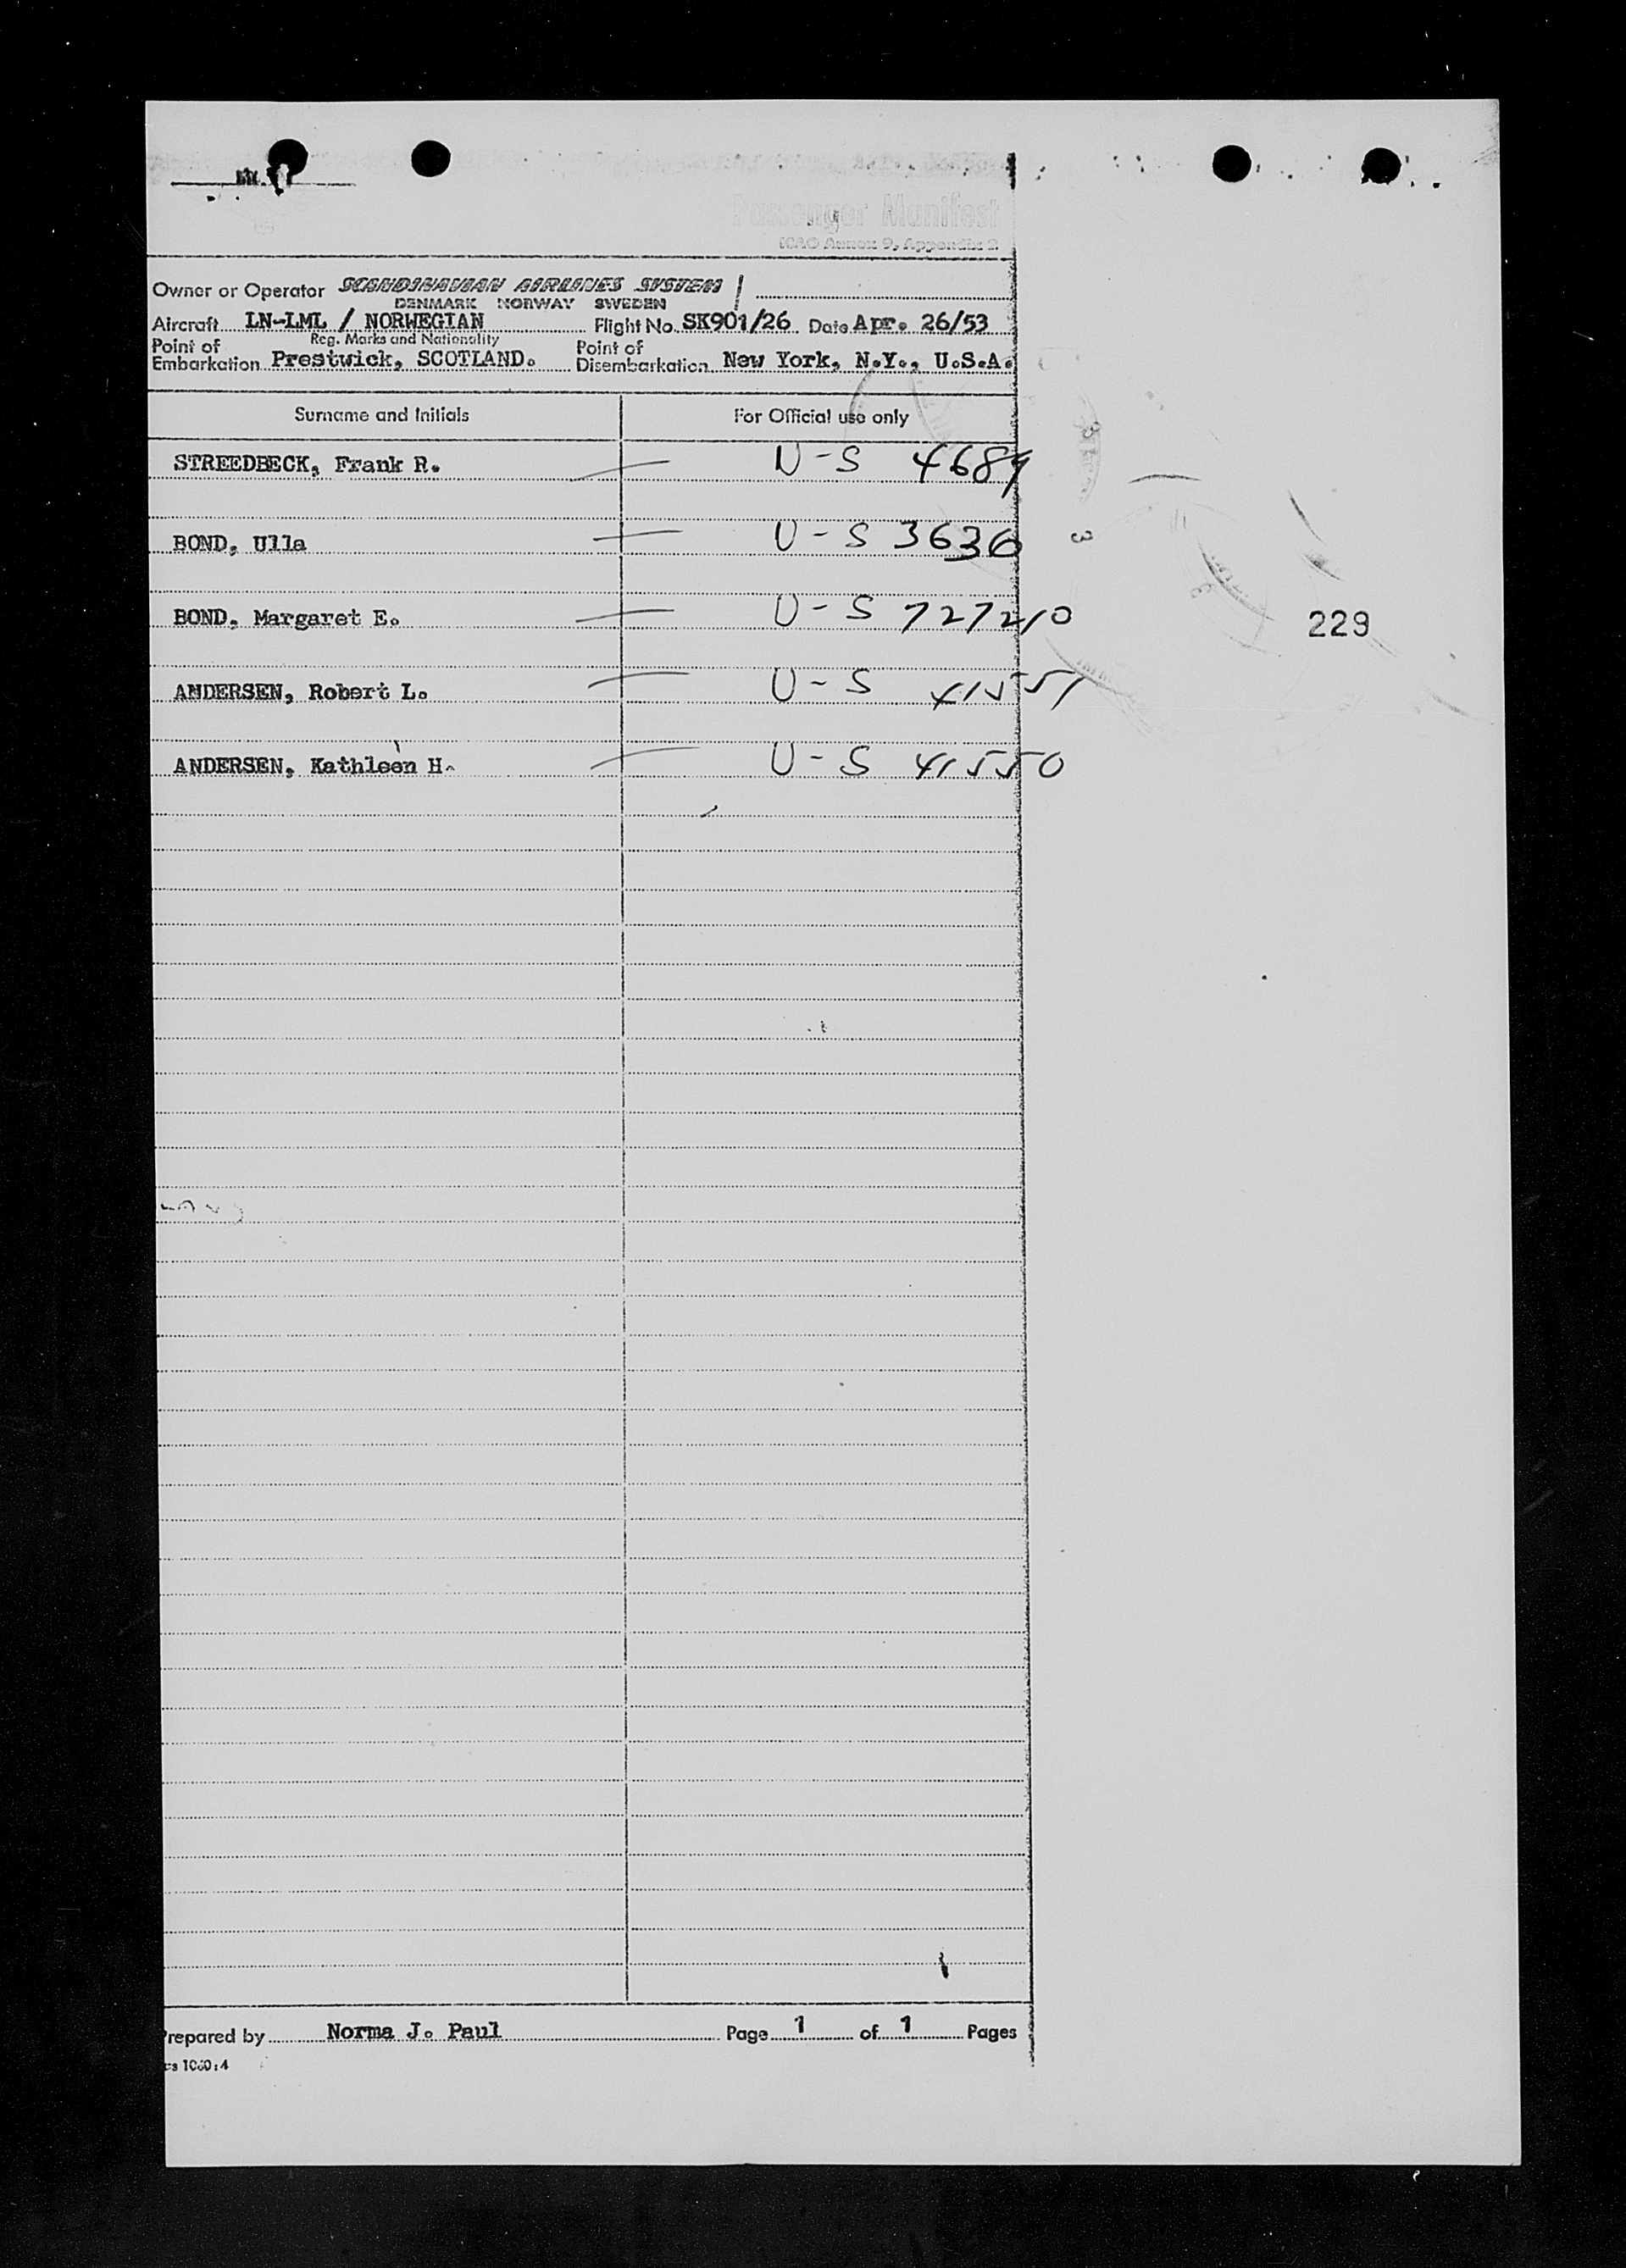 Passenger Manifest
ICAO Annex 9, Appendix 2
Owner or Operator SCANDINAVIAN AIRLINES SYSTEM
DENMARK NORWAY SWEDEN
Aircraft LN-LML / NORWEGIAN Flight No. SK901/26 Date Apr. 26/53
Reg. Marks and Nationality
Point of Embarkation Prestwick, SCOTLAND. Point of Disembarkation New York, N.Y., U.S.A.
Surname and Initials For Official use only
STREEDBECK, Frank R. U-S 4689
BOND, Ulla U-S 3636
BOND, Margaret E. U-S 727210
229
ANDERSEN, Robert L. U-S 41551
ANDERSEN, Kathleen H. U-S 41550
Prepared by Norma J. Paul Page 1 of 1 Pages